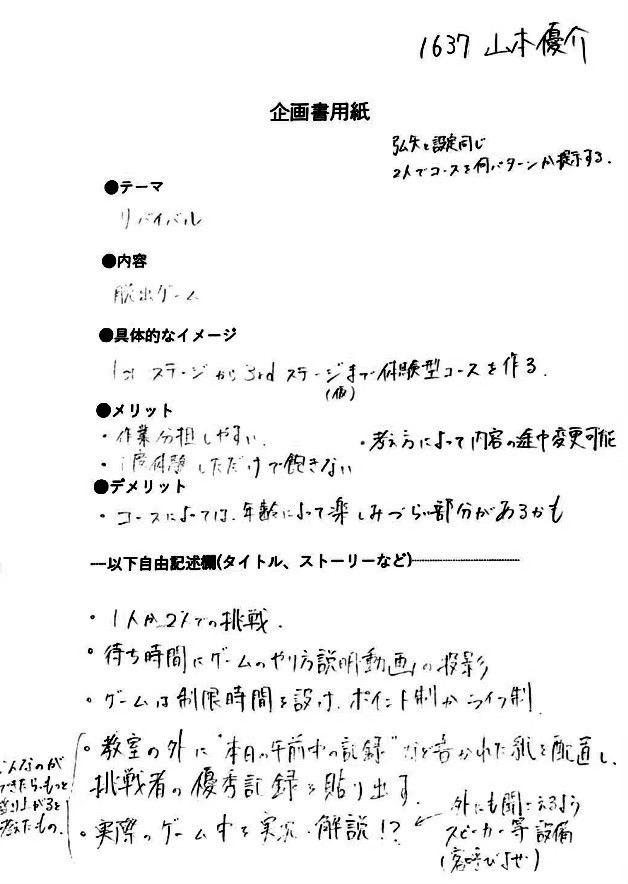 1637 山本優介
企画書用紙
弘矢と設定同じ
2人でコースを何パターンか提示する.
●テーマ
リバイバル
●内容
脱出ゲーム
●具体的なイメージ
1st ステージから3rd ステージまで体験型コースを作る.
(仮)
●メリット
・作業分担しやすい. ・考え方によって内容の途中変更可能
・1度体験しただけで飽きない
●デメリット
・コースによっては、年齢によって楽しみづらい部分があるかも
---以下自由記述欄(タイトル、ストーリーなど)---
・1人か2人での挑戦.
・待ち時間にゲームのやり方説明「動画」の投影
・ゲームは制限時間を設け、ポイント制かライフ制.
・教室の外に"本日の午前中の記録"など書かれた紙を配置し、
挑戦者の優秀記録を貼り出す.
・実際のゲーム中を実況・解説!?
こんなのが
できたら、もっと
盛り上がると
考えたもの.
← 外にも聞こえるよう
スピーカー等設備
(客呼びよせ)